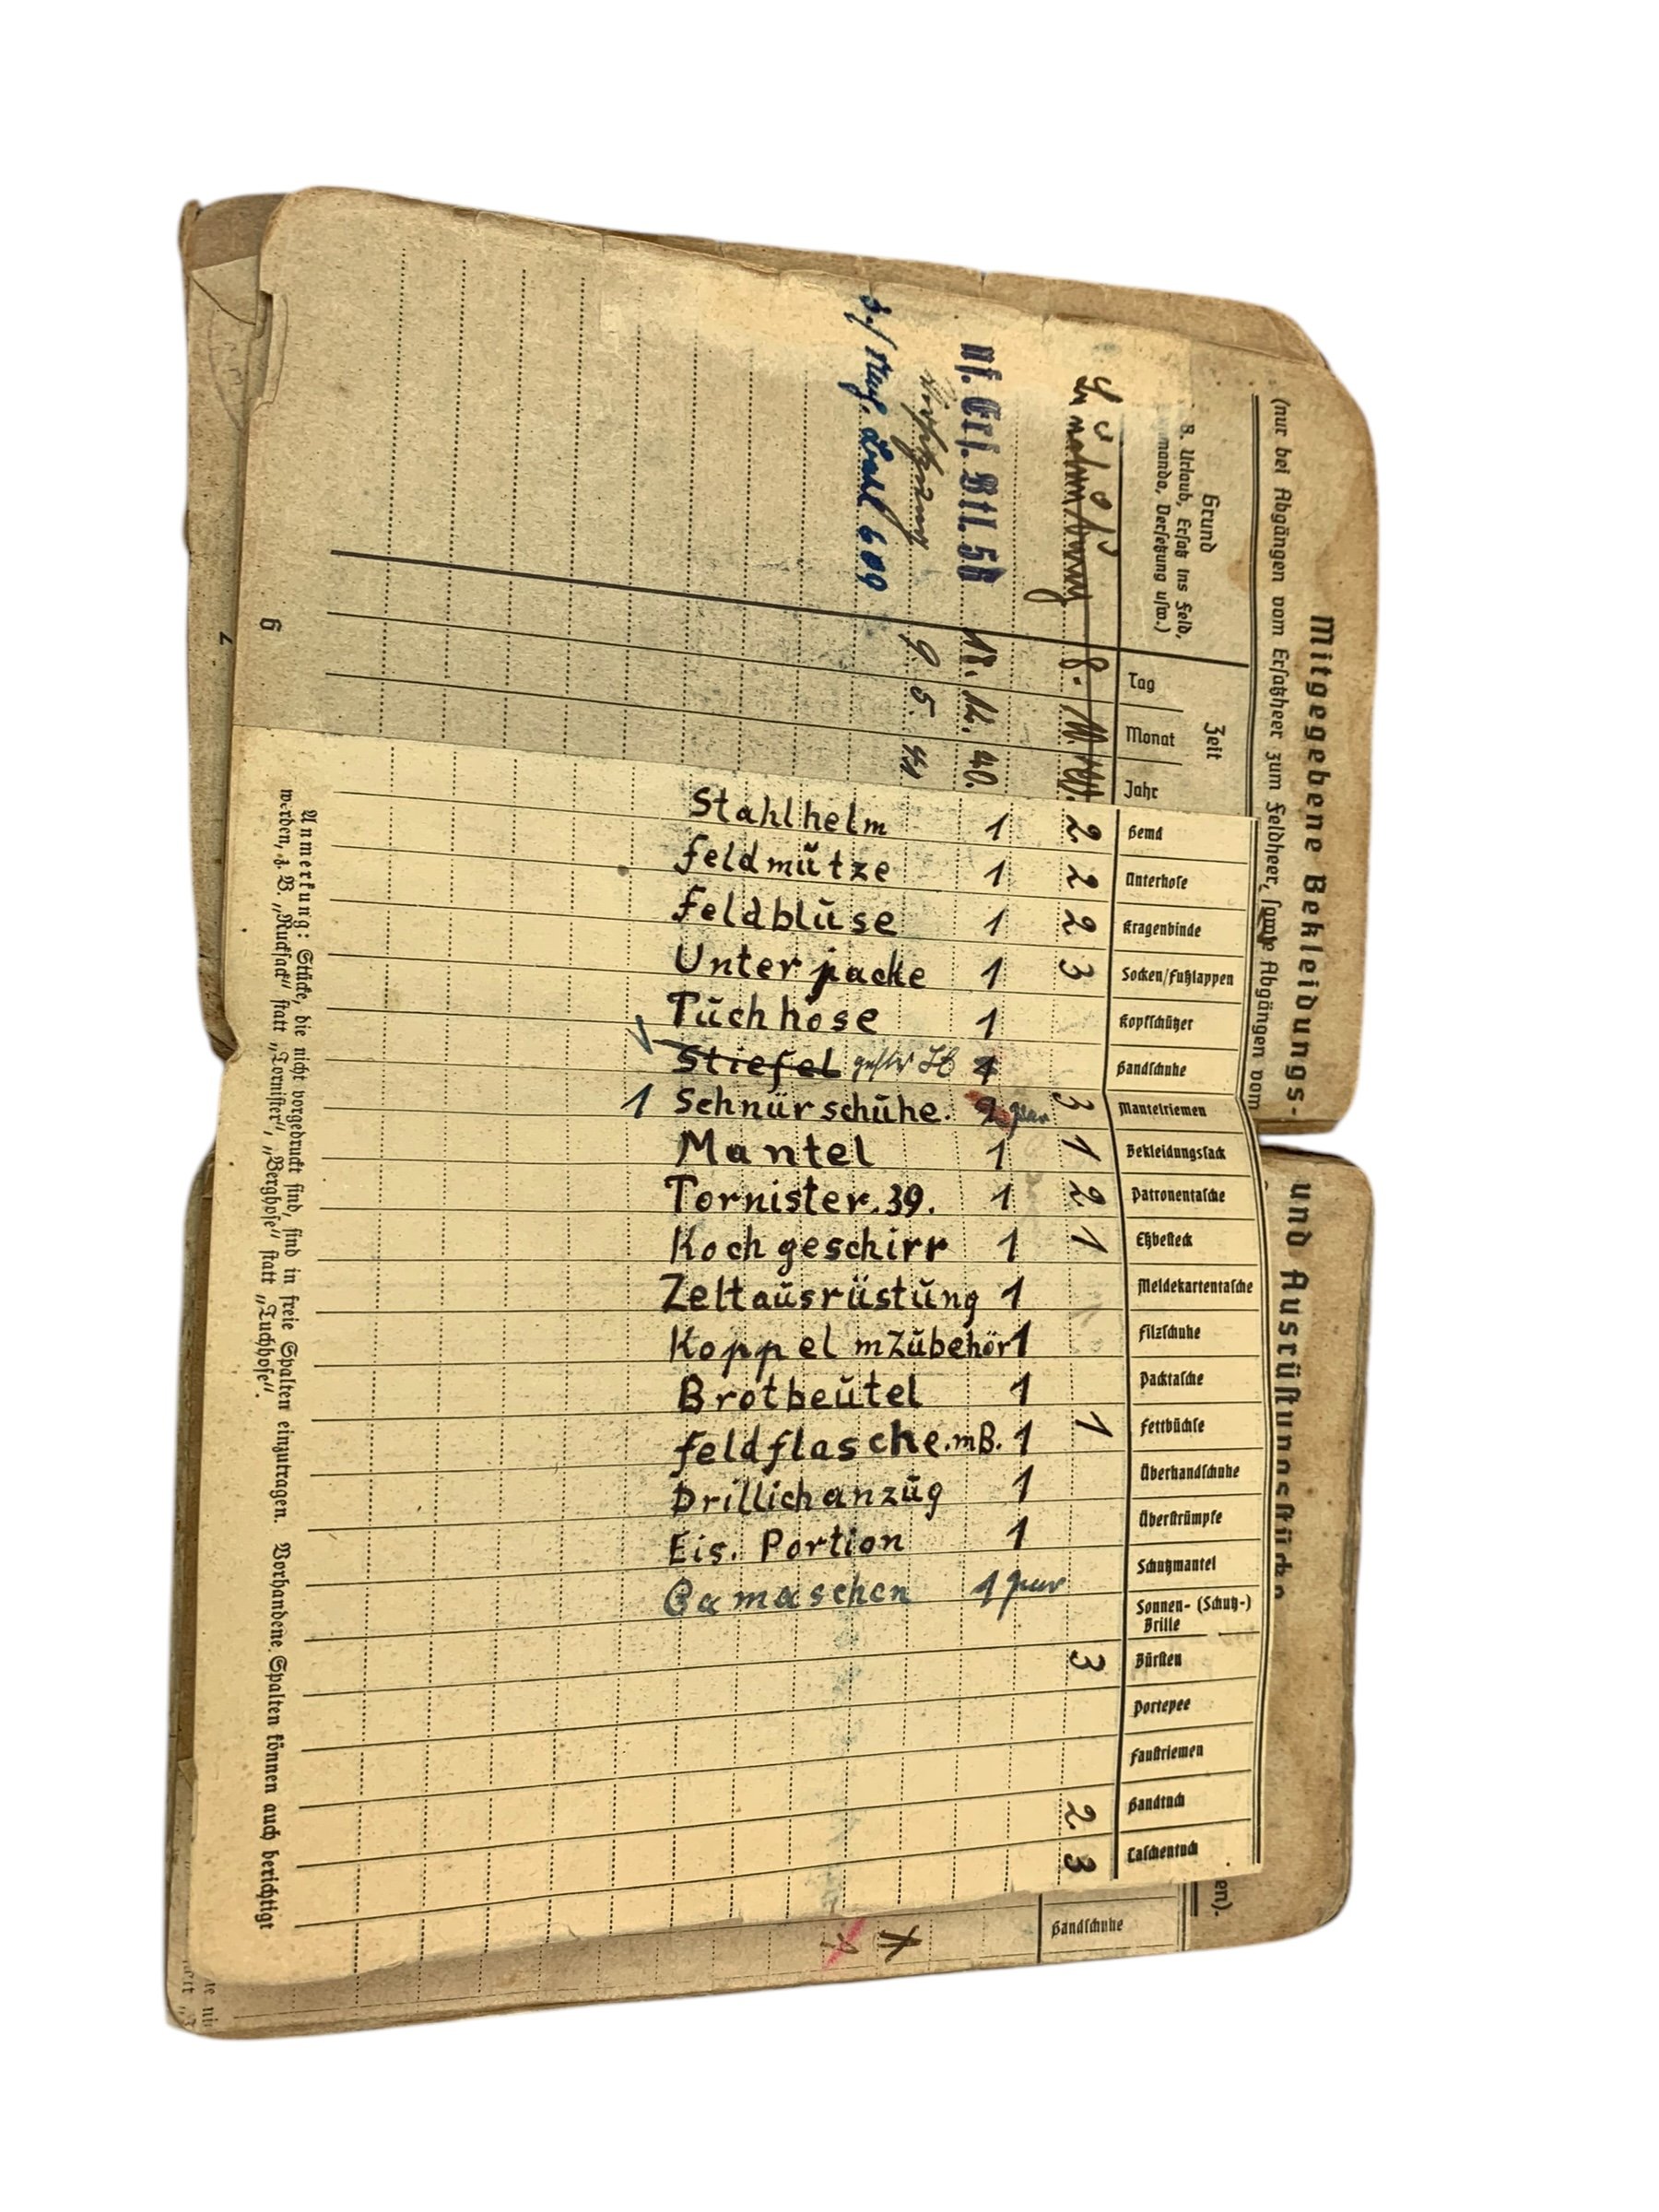 Mitgegebene Bekleidungs- und Ausrüstungsstücke
(nur bei Abgängen vom Ersatzheer zum Feldheer, sowie Abgängen vom
en).
Grund
B. Urlaub, Ersatz ins Feld,
mando, Versetzung usw.)
Zeit
Tag
Monat
Jahr
Hemd
Unterhose
Kragenbinde
Socken/Fußlappen
Kopfschützer
Handschuhe
Mantelriemen
Bekleidungssack
Patronentasche
Eßbesteck
Meldekartentasche
Filzschuhe
Packtasche
Fettbüchse
Überhandschuhe
Überstrümpfe
Schutzmantel
Sonnen- (Schutz-)
Brille
Bürsten
Portepee
Faustriemen
Handtuch
Taschentuch
Handschuhe
8. 11. 40. 2 2 2 3 3 1 2 1 1 3 2 3
nf. Ers. Btl. 56 18. 12. 40.
9. 5. 41
609
Stahlhelm 1
Feldmütze 1
Feldbluse 1
Unterjacke 1
Tuchhose 1
Stiefel
1 Schnürschuhe.
Mantel 1
Tornister.39. 1
Kochgeschirr 1
Zeltausrüstung 1
Koppel mZubehör 1
Brotbeutel 1
Feldflasche.mB. 1
Drillichanzug 1
Eis. Portion 1
Gamaschen 1 paar
Anmerkung: Stücke, die nicht vorgedruckt sind, sind in freie Spalten einzutragen. Vorhandene Spalten können auch berichtigt
werden, z. B. „Rucksack“ statt „Tornister“, „Berghose“ statt „Tuchhose“.
6